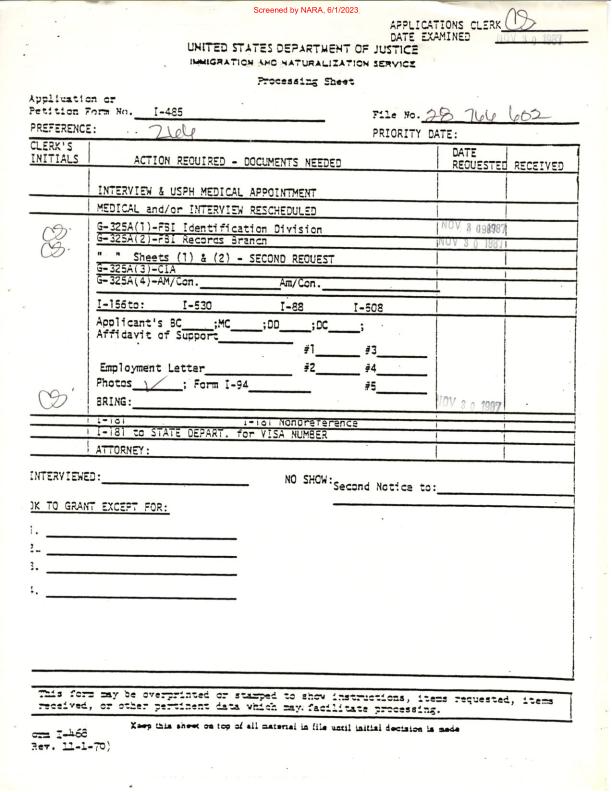 Screened by NARA, 6/1/2023
APPLICATIONS CLERK CS
DATE EXAMINED NOV 30 1987
UNITED STATES DEPARTMENT OF JUSTICE
IMMIGRATION AND NATURALIZATION SERVICE
Processing Sheet
Application or
Petition Form No. I-485
File No. 28 766 602
PREFERENCE: 266
PRIORITY DATE:
CLERK'S INITIALS
ACTION REQUIRED - DOCUMENTS NEEDED
DATE
REQUESTED RECEIVED
INTERVIEW & USPH MEDICAL APPOINTMENT
MEDICAL and/or INTERVIEW RESCHEDULED
CS G-325A(1)-FBI Identification Division NOV 30 1987
CS G-325A(2)-FBI Records Branch NOV 30 1987
" " Sheets (1) & (2) - SECOND REQUEST
G-325A(3)-CIA
G-325A(4)-AM/Con. Am/Con.
I-156to: I-530 I-88 I-508
Applicant's BC ;MC ;DD ;DC ;
Affidavit of Support
#1 #3
Employment Letter #2 #4
Photos ✓ ; Form I-94 #5
CS BRING: NOV 30 1987
I-181 I-181 Nonpreference
I-181 to STATE DEPART. for VISA NUMBER
ATTORNEY:
INTERVIEWED: NO SHOW: Second Notice to:
OK TO GRANT EXCEPT FOR:
1.
2.
3.
4.
This form may be overprinted or stamped to show instructions, items requested, items
received, or other pertinent data which may facilitate processing.
Keep this sheet on top of all material in file until initial decision is made
orm I-468
Rev. 11-1-70)